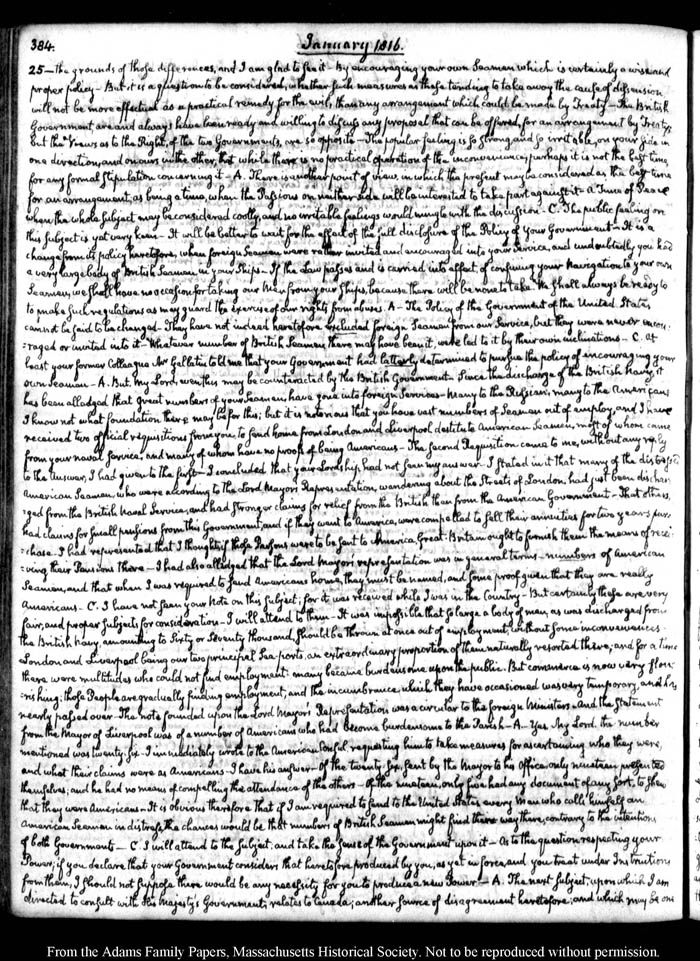 384.
January 1816.
25— the grounds of those differences, and I am glad to see it— By encouraging your own Seamen which is certainly a wise and
proper policy— But it is a question to be considered, whether such measures as these tending to take away the cause of dissension
will not be more effectual as a practical remedy for the evil, than any arrangement which could be made by Treaty— The British
Government are and always have been ready and willing to discuss any proposal that can be offered, for an arrangement by Treaty,
but the Views as to the Right, of the two Governments, are so opposite— The popular feeling is so strong and so irritable, on your side in
one direction, and on ours in the other, that while there is no practical operation of the inconvenience, perhaps it is not the best time,
for any formal stipulation concerning it— A. There is another point of view, in which the present may be considered as the best time
for an arrangement, as being a time, when the Passions on neither side will be interested to take part against it— a Time of Peace
when the whole subject may be considered coolly, and no irritable feelings would mingle with the discussion— C. The public feeling on
this Subject is yet very keen— It will be better to wait for the effect of the full disclosure of the Policy of your Government— It is a
change from its policy heretofore, when foreign Seamen were rather invited and encouraged into your service, and undoubtedly you had
a very large body of British Seamen in your Ships— If the Law passes and is carried into effect, of confining your Navigation to your own
Seamen, we shall have no occasion for taking our Men from your Ships, because there will be none to take. We shall always be ready to
to make such regulations as may guard the exercise of our rights from abuse. A— The Policy of the Government of the United States
cannot be said to be changed— They have not indeed heretofore excluded foreign Seamen from our Service, but they were never encou-
:raged or invited into it— Whatever number of British Seamen there may have been it, were led to it by their own inclinations— C. At
least your former Colleague Mr Gallatin told me that your Government had latterly determined to pursue the policy of encouraging your
own Seamen— A. But my Lord, even this may be counteracted by the British Government— Since the discharge of the British Navy, it
has been alledged that great numbers of your Seamen, have gone into foreign Services— Many to the Russian; many to the American
I know not what foundation there may be for this; but it is notorious that you have vast numbers of Seamen out of employ, and I have
received two official requisitions from you, to send home from London and Liverpool destitute American Seamen, most of whom came
from your naval Service, and many of whom have no proof of being Americans— The Second Requisition came to me, without any reply
to the Answer, I had given to the first— I concluded that your Lordship had not seen my answer— I stated in it that many of the distressed
American Seamen, who were according to the Lord Mayor's Representation, wandering about the Streets of London, had just been dischar-
:ged from the British Naval Service, and had strong or claims for relief from the British than from the American Government— That others,
had claims for small pensions from this Government, and if they went to America, were compelled to sell their annuities for two years pur-
:chase— I had represented that I thought, if those Persons were to be sent to America, Great-Britain ought to furnish them the means of recei-
:ving their Pensions there— I had also alledged that the Lord Mayor's representation was in general terms— numbers of American
Seamen, and that when I was required to send Americans home, they must be named, and some proof given that they are really
Americans— C. I have not seen your Note on this subject; for it was received while I was in the Country— But certainly these are very
fair, and proper subjects for consideration— I will attend to them— It was impossible that so large a body of men, as was discharged from
the British Navy, amounting to Sixty or Seventy thousand, should be thrown at once out of employment, without some inconveniences—
London and Liverpool being our two principal Sea-ports, an extraordinary proportion of them naturally resorted there; and for a time
there were multitudes who could not find employment— many became burdensome upon the public. But commerce is now very flou-
:rishing; those People are gradually finding employment; and the incumbrance, which they have occasioned was very temporary, and is
nearly passed over. The note founded upon the Lord Mayor's Representation was a circular to the foreign Ministers— And the Statement
from the Mayor of Liverpool was of a number of Americans who had become burdensome to the Parish— A— Yes My Lord, the number
mentioned was twenty-six— I immediately wrote to the American Consul requesting him to take measures for ascertaining who they were,
and what their claims were as Americans— I have his answer— Of the twenty-six sent by the Mayor to his Office, only nineteen presented
themselves; and he had no means of compelling the attendance of the others— Of the nineteen, only five had any document of any sort, to shew
that they were Americans— It is obvious therefore that if I am required to send to the United States every man who calls himself an
American Seaman in distress, the chances would be that numbers of British Seamen might find there way there, contrary to the intentions
of both Governments— C. I will attend to the Subject, and take the sense of the Government upon it— As to the question respecting your
Power, if you declare that your Government considers that heretofore produced by you, as yet in force, and you treat under Instructions
from them, I should not suppose there would be any necessity for you to produce a new Power— A. The next subject, upon which I am
directed to consult with His Majesty's Government, relates to Canada; another source of disagreement heretofore, and which may be one
From the Adams Family Papers, Massachusetts Historical Society. Not to be reproduced without permission.